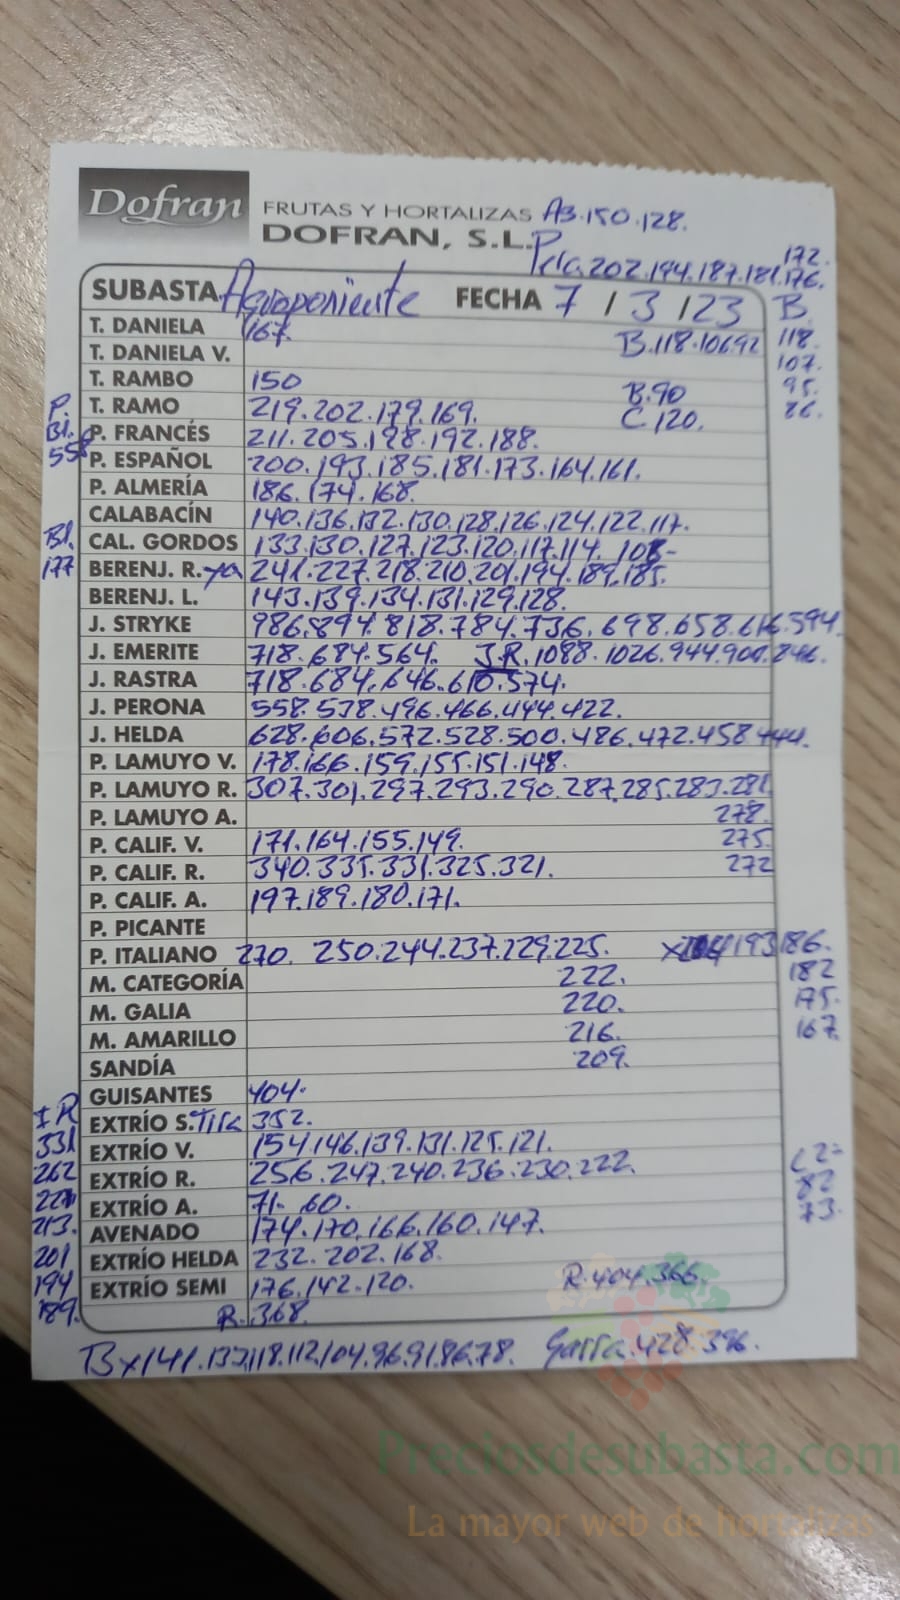 Dofran FRUTAS Y HORTALIZAS A3.150.128.
DOFRAN, S.L. Pera.202.194.187.181.176.
172.
SUBASTA Agroponiente FECHA 7 / 3 / 23 B.
T. DANIELA 167. B.118.106.92 118.
T. DANIELA V. 107.
T. RAMBO 150 B.90 95.
P. T. RAMO 219.202.179.169. C.120. 86.
Bl. P. FRANCÉS 211.205.198.192.188.
558 P. ESPAÑOL 200.193.185.181.173.164.161.
P. ALMERÍA 186.174.168.
CALABACÍN 140.136.132.130.128.126.124.122.117.
Bl. CAL. GORDOS 133.130.127.123.120.117.114.
177 BERENJ. R. 241.227.218.210.201.194.189.185.
BERENJ. L. 143.139.134.131.129.128.
J. STRYKE 986.894.818.784.736.698.658.616.594
J. EMERITE 718.684.564. J.R.1088.1026.944.900.846.
J. RASTRA 718.684.646.610.574.
J. PERONA 558.538.496.466.444.422.
J. HELDA 628.606.572.528.500.486.472.458.444.
P. LAMUYO V. 178.166.159.155.151.148.
P. LAMUYO R. 307.301.297.293.290.287.285.283.281.
P. LAMUYO A. 278.
P. CALIF. V. 171.164.155.149. 275.
P. CALIF. R. 340.335.331.325.321. 272
P. CALIF. A. 197.189.180.171.
P. PICANTE
P. ITALIANO 270. 250.244.237.229.225. 193.186.
M. CATEGORÍA 222. 182
M. GALIA 220. 175.
M. AMARILLO 216. 167.
SANDÍA 209.
GUISANTES 404.
IR EXTRÍO S. Tira 352.
331 EXTRÍO V. 154.146.139.131.125.121.
262 EXTRÍO R. 256.247.240.236.230.222.
EXTRÍO A. 71. 60. 82
213. AVENADO 174.170.166.160.147. 73.
201 EXTRÍO HELDA 232.202.168.
194 EXTRÍO SEMI 176.142.120. R.404.366.
189. R.368.
Bx141.132.118.112.104.96.91.86.78. Garra.428.396.
Preciosdesubasta.com
La mayor web de hortalizas